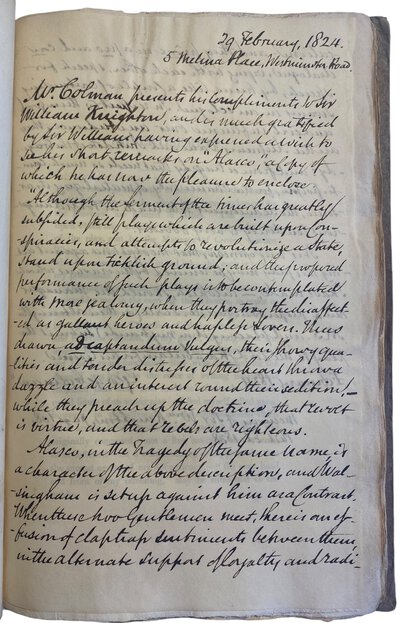 29 February, 1824.
5 Melina Place, Westminster Road.
Mr Colman presents his Compliments to Sir
William Knighton, and is much gratified
by Sir William having expressed a wish to
see his short remarks on "Alasco," a Copy of
which he has now the pleasure to enclose.
"Although the ferment of the times has greatly
subsided, still plays which are built upon Con-
spiracies, and attempts to revolutionize a State,
stand upon ticklish ground; and the proposed
performance of such plays is to be contemplated
with more jealousy, when they portray the disaffect-
ed as gallant heroes and hapless Lovers. Thus
drawn ad captandum vulgus, their showy qua-
lities and tender distresses of the heart throw a
dazzle and an interest round their sedition,
while they preach up the doctrine, that revolt
is virtue, and that rebels are righteous.
Alasco, in the Tragedy of the same name, is
a character of the above description, and Wal-
-singham is set up against him as a Contrast.
When these two Gentlemen meet, there is an ef-
-fusion of claptrap sentiments between them,
in the alternate support of loyalty and radi-